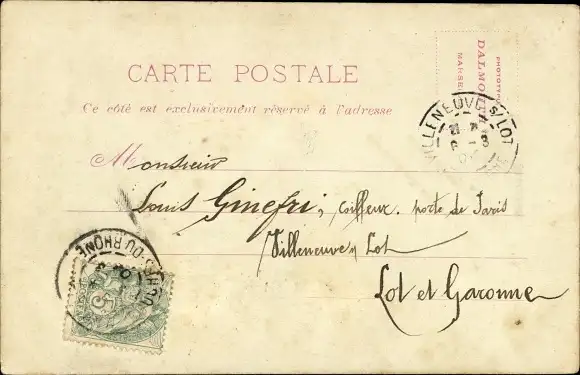 CARTE POSTALE
Ce côté est exclusivement réservé à l'adresse
PHOTOTYPIE
MARSEILLE
VILLENEUVE S/ LOT
Monsieur
Louis Ginefri, coiffeur. porte de Paris
Villeneuve s/ Lot
Lot et Garonne
DU-RHÔNE